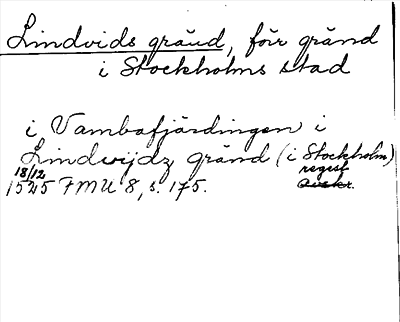 Lindvids gränd, förr gränd
i Stockholms stad
i Vambafjärdingen i
Lindwijdz gränd (i Stockholm)
18/12 regest
1545 FMU 8, s. 175. avskr.